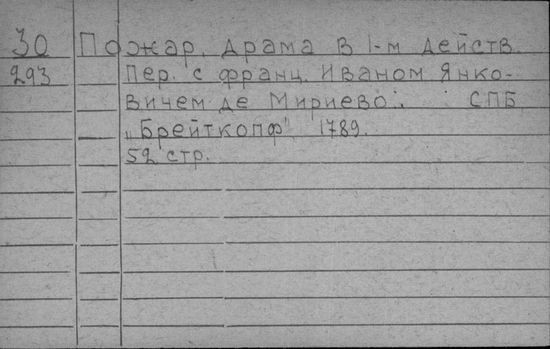 30 Пожар. Драма в 1-м действ.
293 Пер. с франц. Иваном Янко-
вичем де Мириево. СПБ
„Брейткопф" 1789.
52 стр.